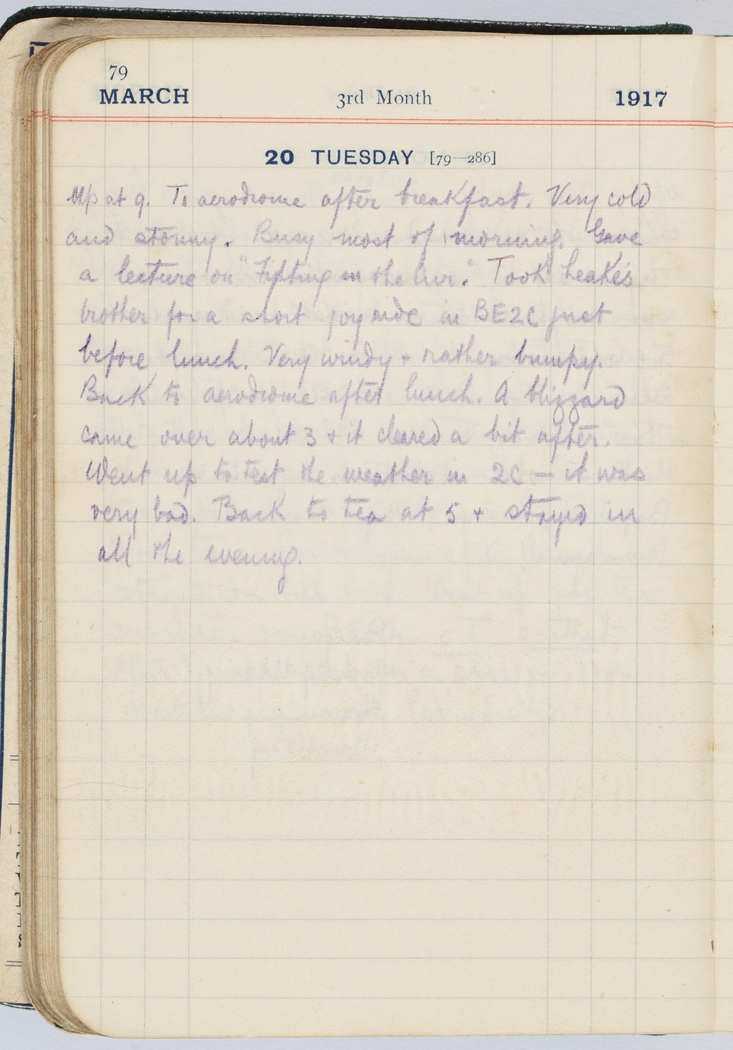 79
MARCH 3rd Month 1917
20 TUESDAY [79—286]
Up at 9. To aerodrome after breakfast. Very cold
and stormy. Busy most of morning. Gave
a lecture on "Fighting in the Air." Took Leake's
brother for a short joy ride in BE2C just
before lunch. Very windy + rather bumpy.
Back to aerodrome after lunch. A blizzard
came over about 3 + it cleared a bit after.
Went up to test the weather in 2C — it was
very bad. Back to tea at 5 + stayed in
all the evening.